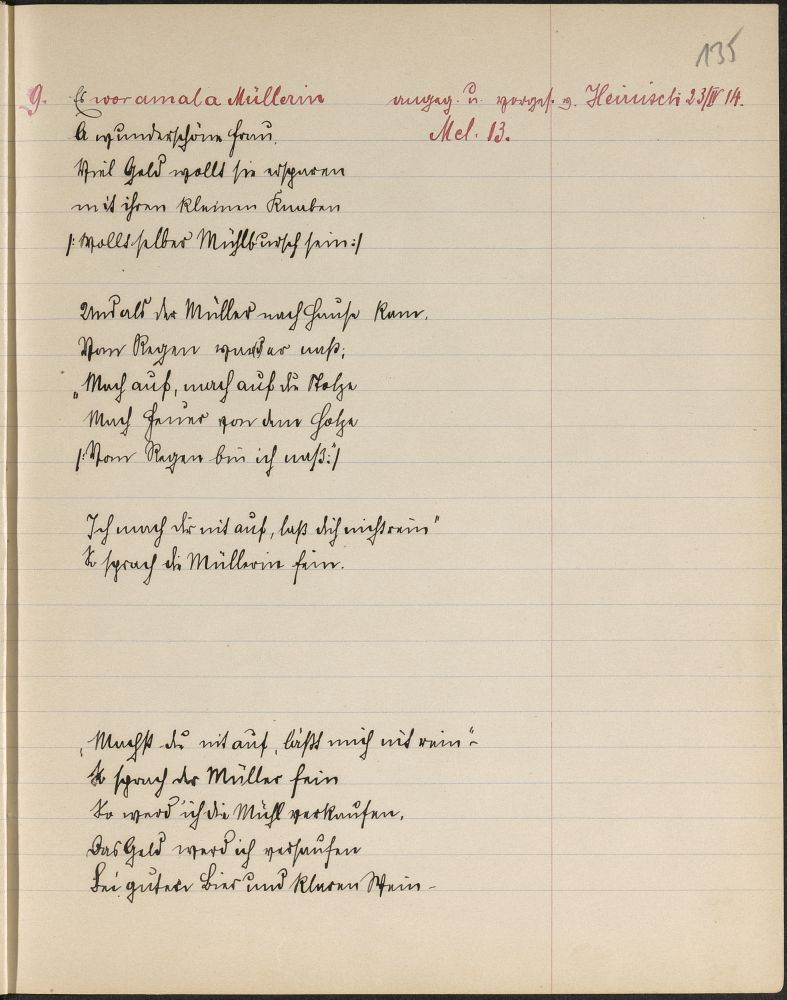 135
9. Es wor amal a Müllerin angeg. u. vorges. v. Heinisch 23/IV 14.
A wunderschöne Frau. Mel. 13.
Viel Geld wollt sie ersparen
mit ihren kleinen Knaben
/: Wollt selber Mühlbursch sein :/
Und als der Müller nach Hause kam,
Vom Regen war er naß;
„Mach auf, mach auf du Stolze
Mach Feuer von dem Holze
/: Vom Regen bin ich naß:"/
Ich mach dir nit auf, laß dich nicht rein"
So sprach die Müllerin fein.
„Machst du nit auf, läßt mich nit rein" -
So sprach der Müller fein
So werd ich die Mühl verkaufen,
Das Geld werd ich versaufen
Bei guten Bier und klaren Wein -